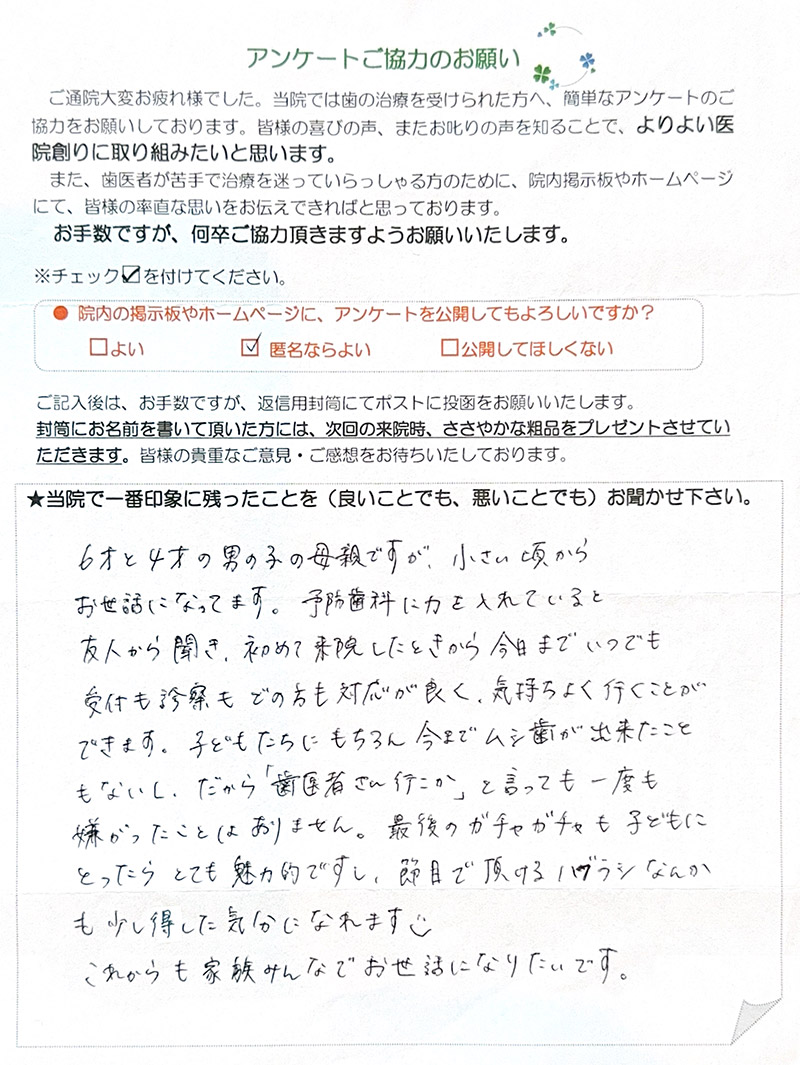 アンケートご協力のお願い
ご通院大変お疲れ様でした。当院では歯の治療を受けられた方へ、簡単なアンケートのご
協力をお願いしております。皆様の喜びの声、またお叱りの声を知ることで、よりよい医
院創りに取り組みたいと思います。
また、歯医者が苦手で治療を迷っていらっしゃる方のために、院内掲示板やホームページ
にて、皆様の率直な思いをお伝えできればと思っております。
お手数ですが、何卒ご協力頂きますようお願いいたします。
※チェック☑を付けてください。
● 院内の掲示板やホームページに、アンケートを公開してもよろしいですか？
□よい ☑匿名ならよい □公開してほしくない
ご記入後は、お手数ですが、返信用封筒にてポストに投函をお願いいたします。
封筒にお名前を書いて頂いた方には、次回の来院時、ささやかな粗品をプレゼントさせてい
ただきます。皆様の貴重なご意見・ご感想をお待ちいたしております。
★当院で一番印象に残ったことを（良いことでも、悪いことでも）お聞かせ下さい。
6才と4才の男の子の母親ですが、小さい頃から
お世話になってます。予防歯科に力を入れていると
友人から聞き、初めて来院したときから今日までいつでも
受付も診察もどの方も対応が良く、気持ちよく行くことが
できます。子どもたちにもちろん今までムシ歯が出来たこと
もないし、だから「歯医者さん行こか」と言っても一度も
嫌がったことはありません。最後のガチャガチャも子どもに
とったらとても魅力的ですし、節目で頂けるハブラシなんか
も少し得した気分になれます☺
これからも家族みんなでお世話になりたいです。